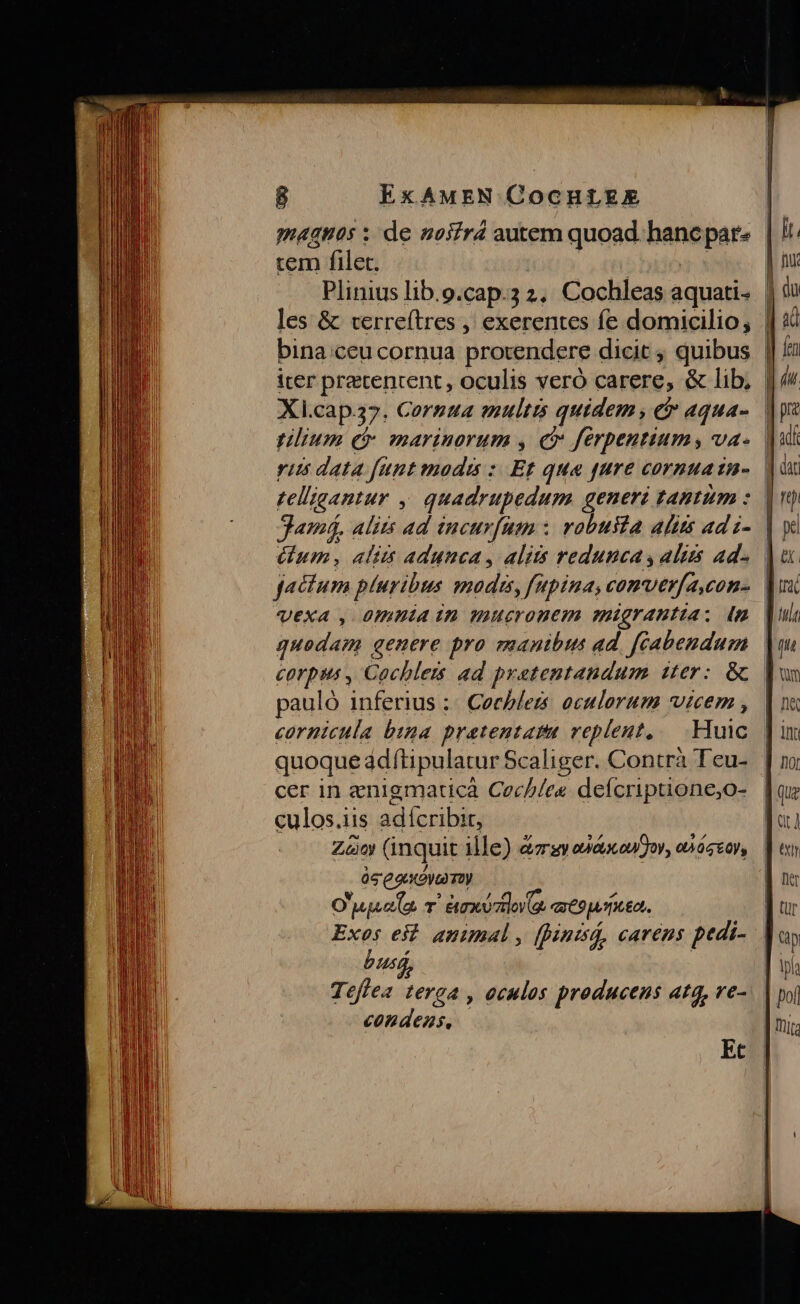 8 EXAMEN COCHLEÆ
magnos: de nostrâ autem quoad hanc par-
tem silet.
Plinius lib.9.cap.32. Cochleas aquati-
les & terrestres, exerentes se domicilio,
bina ceu cornua protendere dicit, quibus
iter prætentent, oculis verò carere, & lib.
XI.cap.37. Cornua multis quidem, & aqua-
tilium & marinorum, & serpentium, va-
riis data sunt modis: Et quæ jure cornua in-
telligantur, quadrupedum generi tantùm:
Jamq, aliis ad incursum: robusta aliis ad i-
ctum, aliis adunca, aliis redunca, aliis ad-
jactum pluribus modis, supina, conversa, con-
vexa, omnia in mucronem migrantia: In
quodam genere pro manibus ad scabendum
corpus, Cochleis ad prætentandum iter: &
paulò inferius: Cochleis oculorum vicem,
cornicula bina prætentatu replent. Huic
quoque adstipulatur Scaliger. Contrà Teu-
cer in ænigmaticâ Cochleæ descriptione, o-
culos iis adscribit,
Ζῶον (inquit ille)
Exos est animal, spinisq, carens pedi-
busq,
Testea terga, oculos producens atq, re-
condens.
Et